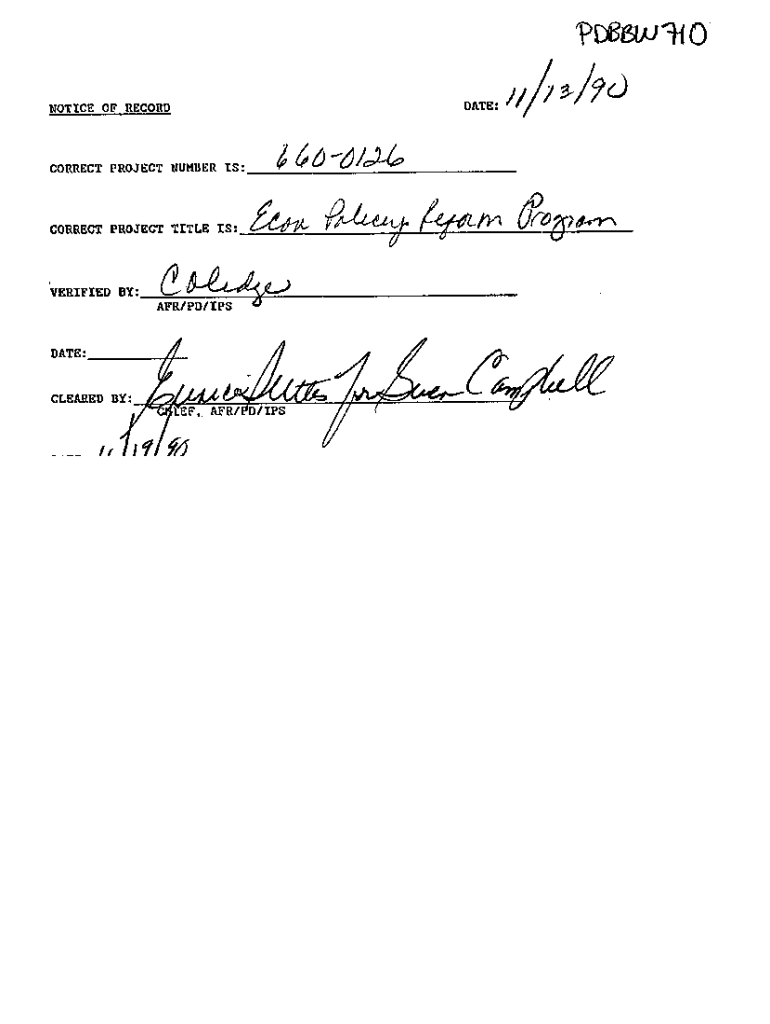 PDBBW710
NOTICE OF RECORD DATE: 11/13/90
CORRECT PROJECT NUMBER IS: 660-0126
CORRECT PROJECT TITLE IS: Econ Policy Reform Program
VERIFIED BY:
AFR/PD/IPS
DATE:
CLEARED BY: for Gwen Campbell
CHIEF, AFR/PD/IPS
11/19/90